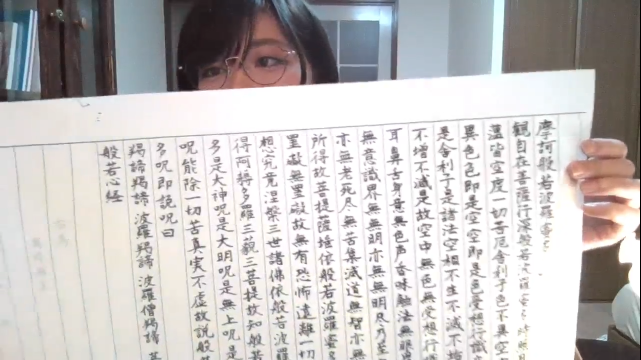 摩訶般若波羅蜜多
観自在菩薩行深般若波羅蜜多時照見
蘊皆空度一切苦厄舎利子色不異空
異色色即是空空即是色受想行識
是舎利子是諸法空相不生不滅不
不増不減是故空中無色無受想行
耳鼻舌身意無色声香味触法無眼
無意識界無無明亦無無明尽乃至
亦無老死尽無苦集滅道無智亦無
所得故菩提薩埵依般若波羅蜜多
罣礙故無有恐怖遠離一切
想究竟涅槃三世諸佛依般若波羅
得阿耨多羅三藐三菩提故知般若
多是大神呪是大明呪是無上呪是
呪能除一切苦真実不虚故説般
多呪即説呪曰
羯諦羯諦波羅羯諦波羅僧羯諦
般若心経